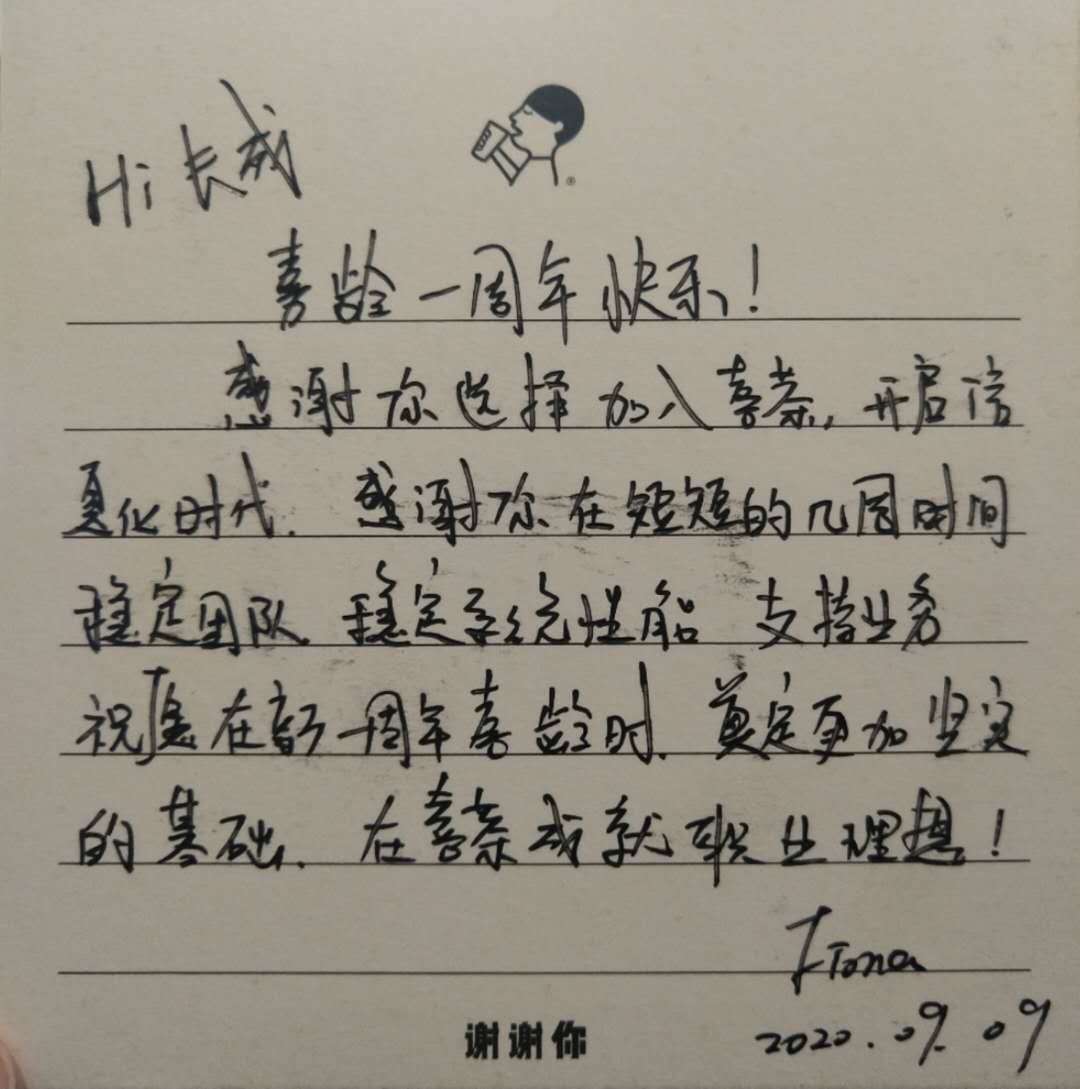 Hi 长威
喜龄一周年快乐!
感谢你选择加入喜茶,开启信
息化时代.感谢你在短短的几周时间
稳定团队.稳定系统性能 支持业务
祝愿在新一周年喜龄时.奠定更加坚实
的基础.在喜茶成就职业理想!
2020.09.09
谢谢你